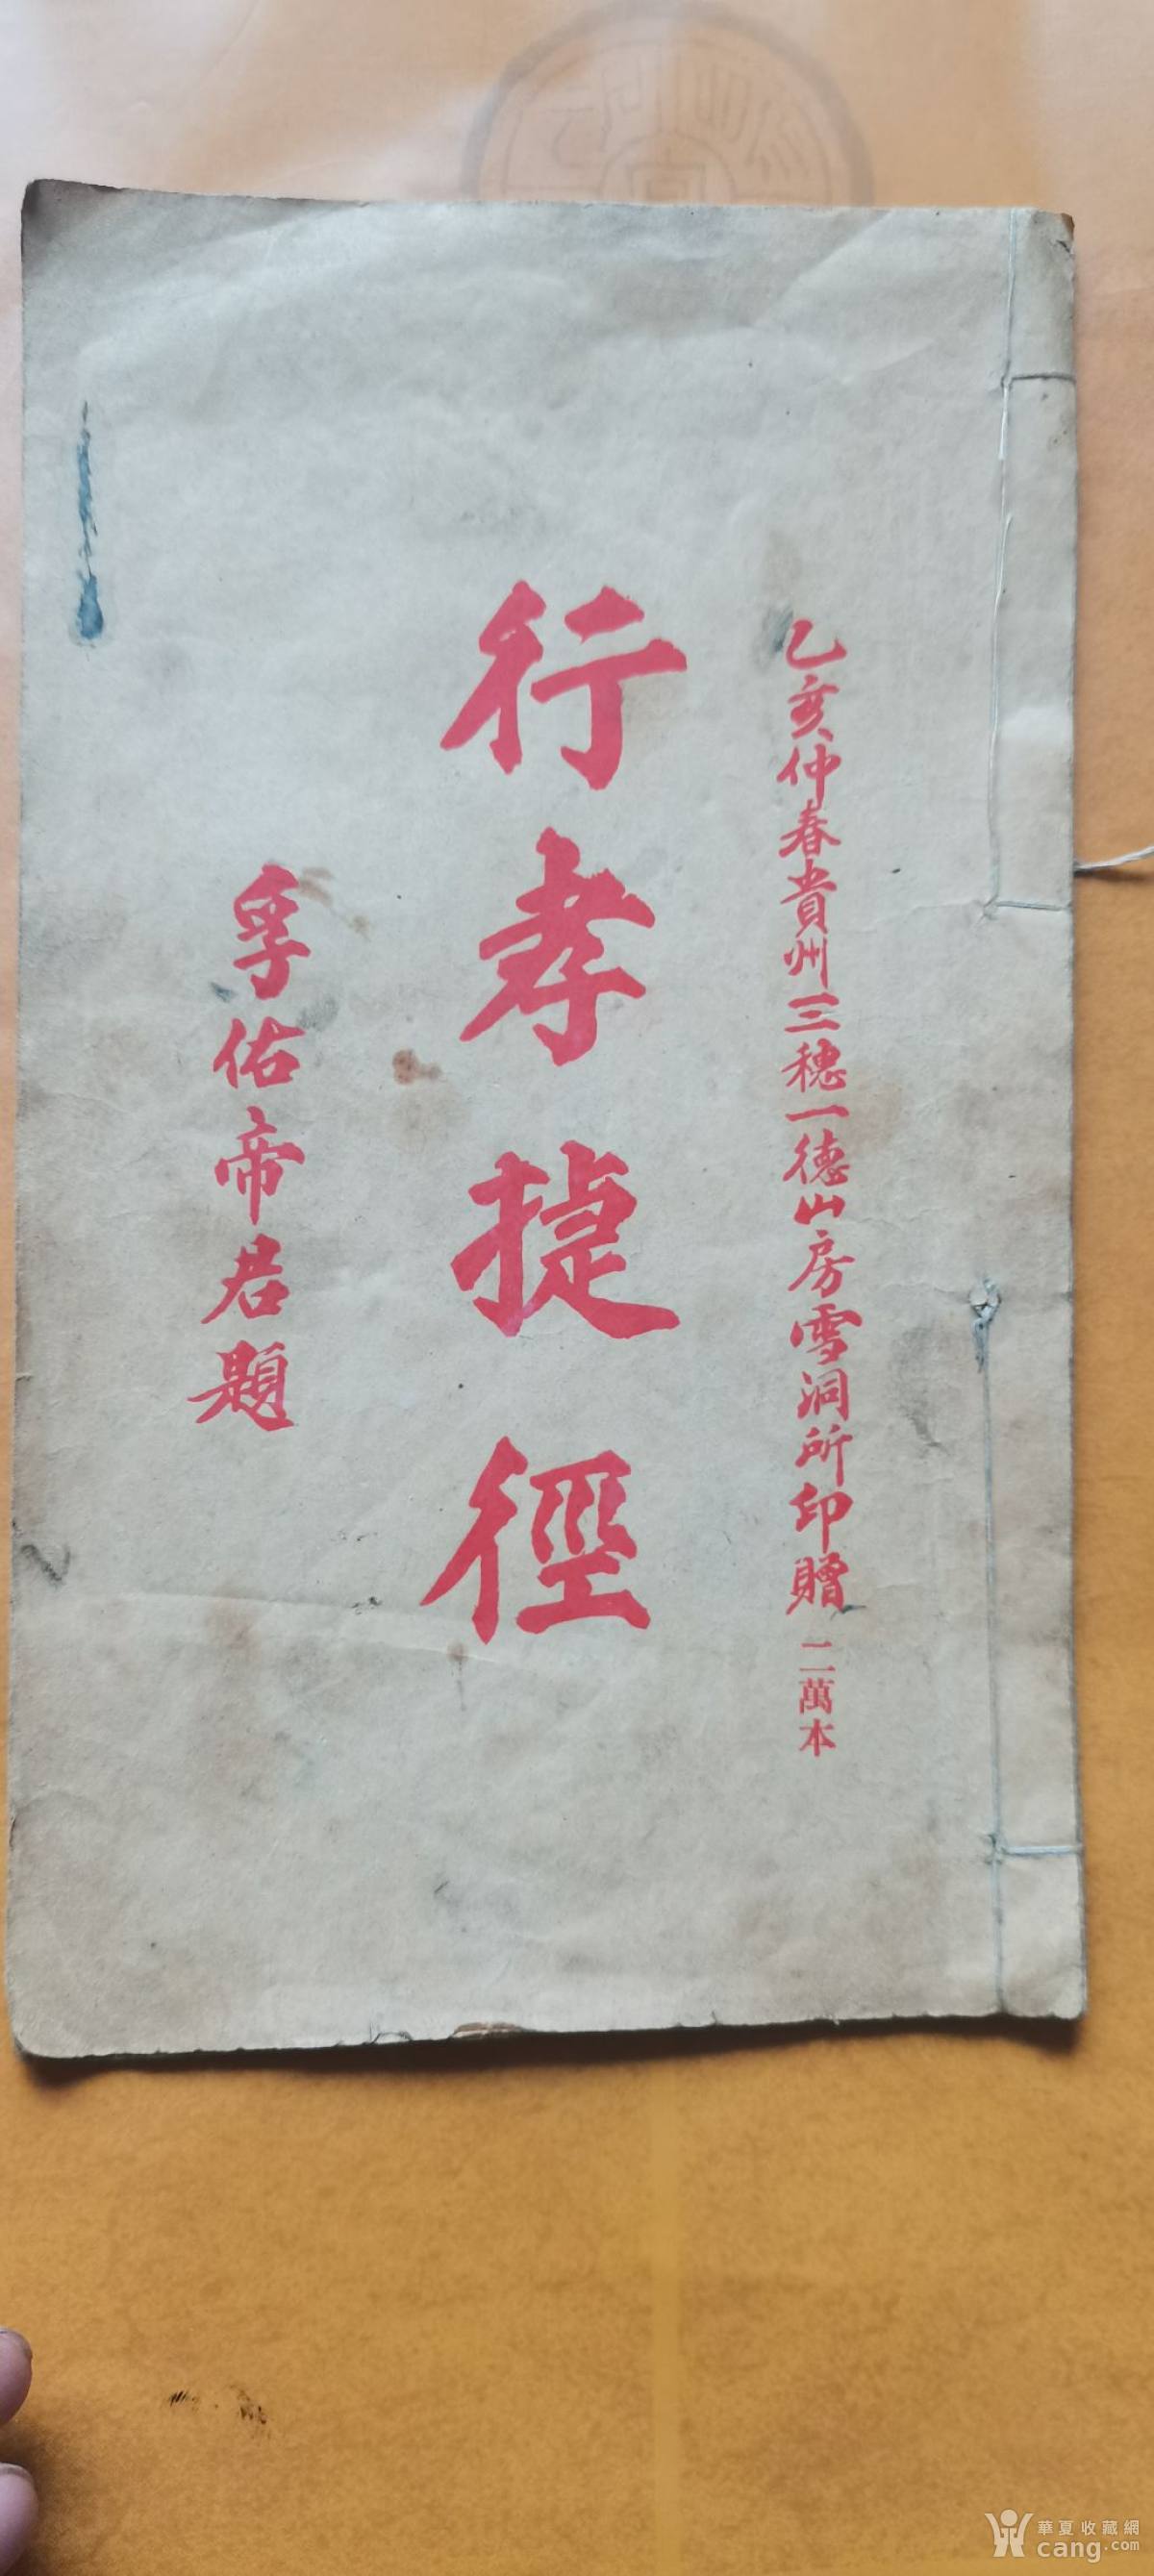 乙亥仲春貴州三穗一德山房雪洞所印贈 二萬本
行孝捷徑
孚佑帝君題
華夏收藏網
cang.com